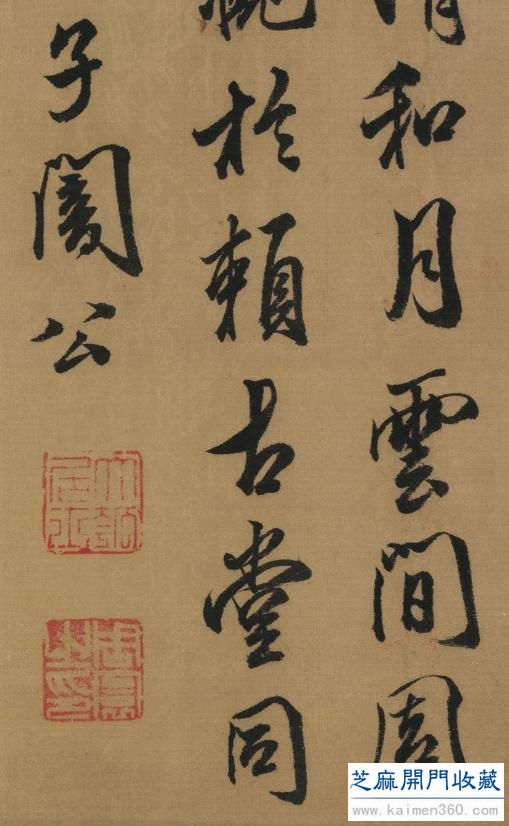 清和月雲間周
於賴古堂同
子公
芝麻開門收藏
www.kaimen360.com